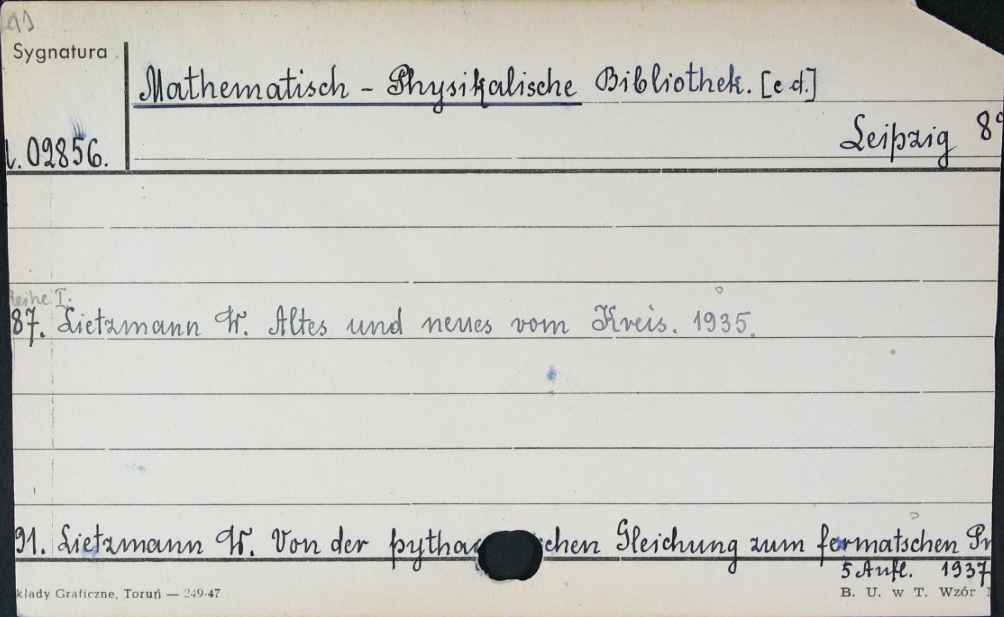 Sygnatura
Mathematisch - Physikalische Bibliothek. [e d.]
Leipzig 8°
02856.
Reihe I.
87. Lietzmann W. Altes und neues vom Kreis. 1935.
91. Lietzmann W. Von der pythag chen Gleichung zum fermatschen Pr
5 Aufl. 1937
kłady Graficzne, Toruń — 249-47
B. U. w T. Wzór